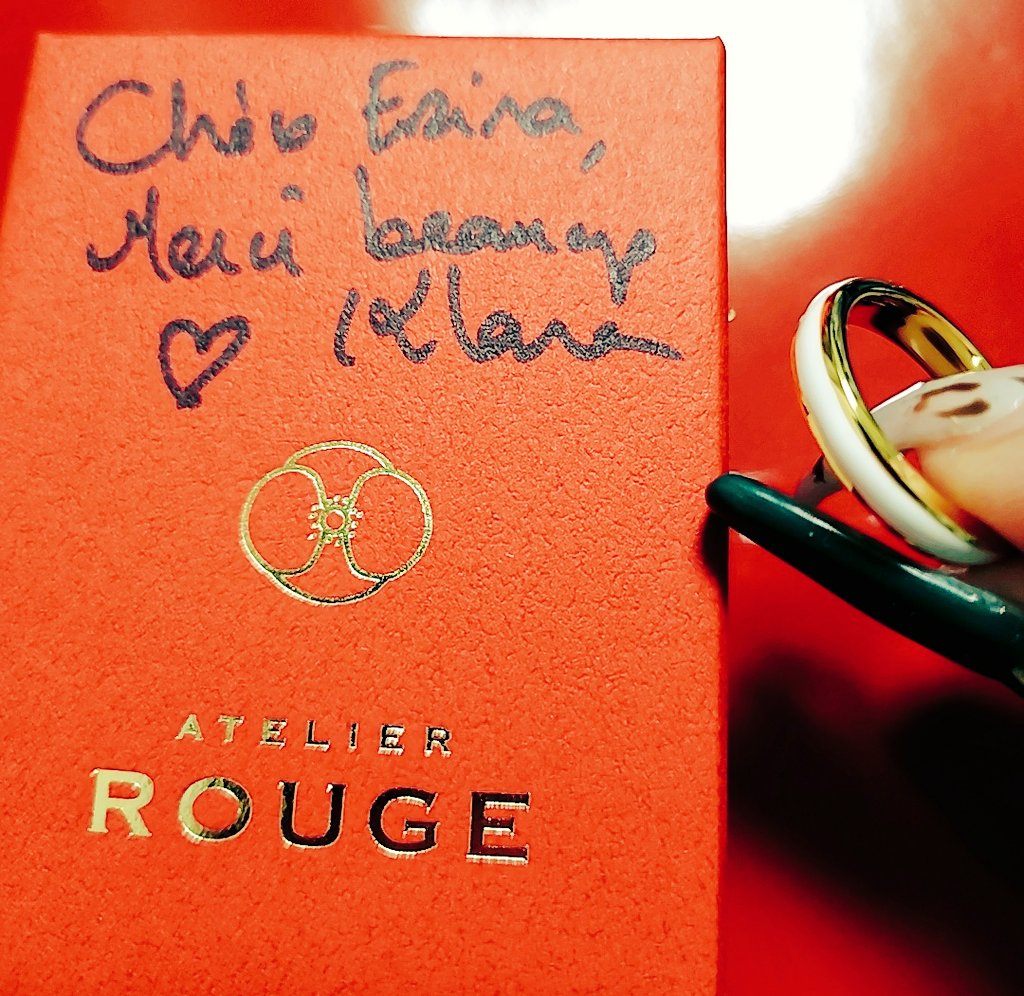 Chère
Merci beaucoup
♡ Klara
ATELIER
ROUGE